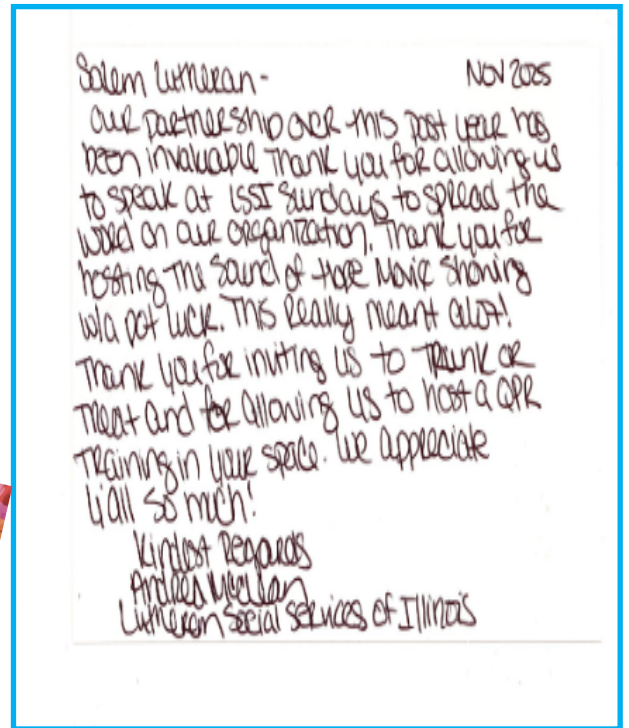 Salem Lutheran - NOV 2025
Our partnership over this past year has
been invaluable Thank you for allowing us
to speak at LSSI Sundays to spread the
word on our organization. Thank you for
hosting the Sound of Hope Movie Showing
w/a pot luck. This Really meant alot!
Thank you for inviting us to TRUNK OR
TREAT and for allowing us to host a QPR
Training in your space. We appreciate
y'all so much!
Kindest Regards
Andrea
Lutheran Social Services of Illinois